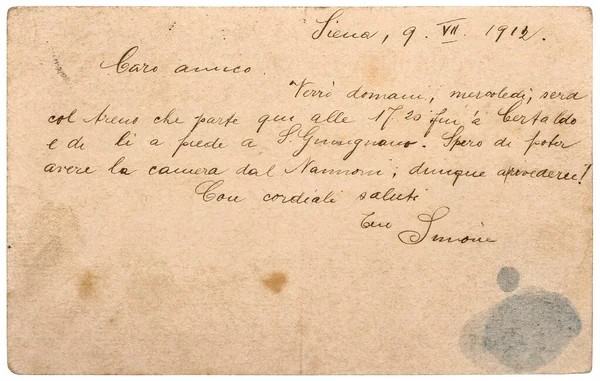 Siena, 9. VII. 1912.
Caro amico.
Verrò domani, mercoledì, sera
col treno che parte qui alle 17.20 fin'a Certaldo
e di lì a piede a S. Gimignano. Spero di poter
avere la camera dal Nannoni; dunque arrivederci!
Con cordiali saluti
Tuo
Simone